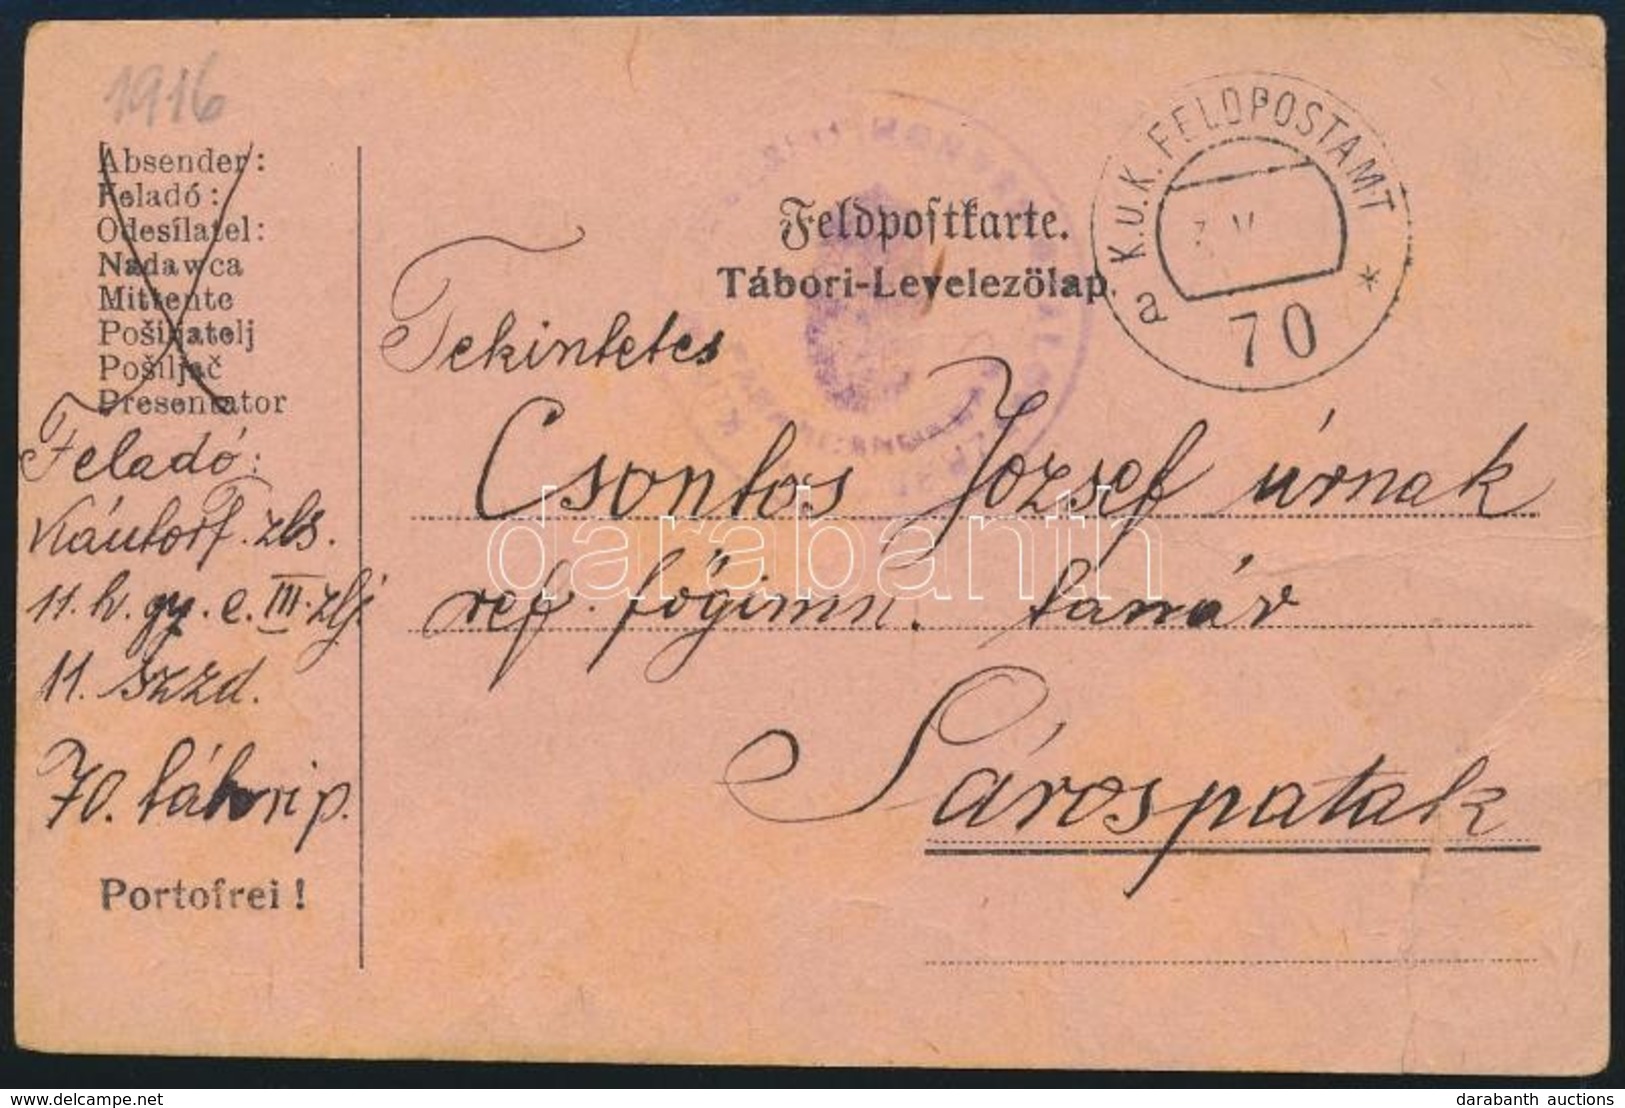 1916
Absender:
Feladó:
Odesílatel:
Nadawca
Mittente
Pošiljatelj
Pošiljač
Presentator
Feldpostkarte.
Tábori-Levelezölap.
K.U.K. FELDPOSTAMT
a 70 *
Tekintetes
Csontos József úrnak
ref. főgimn. tanár
Sárospatak
Feladó:
zls.
11. h. gy. e. III. zlj
11. szzd.
70. tábori p.
Portofrei!
darabanth
delcampe.net
darabanth auctions